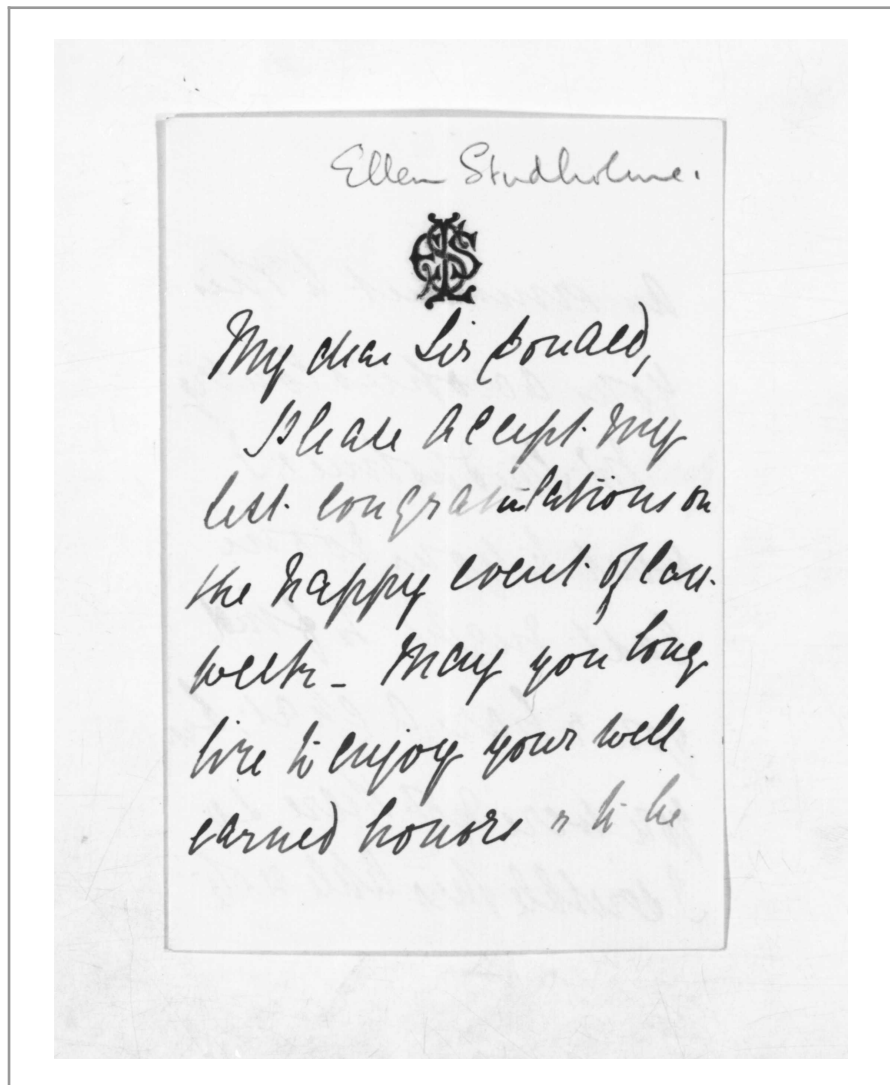 Ellen Studholme.
My dear Sir Donald,
Please accept my
best congratulations on
the happy event of last
week - May you long
live to enjoy your well
earned honors & to be